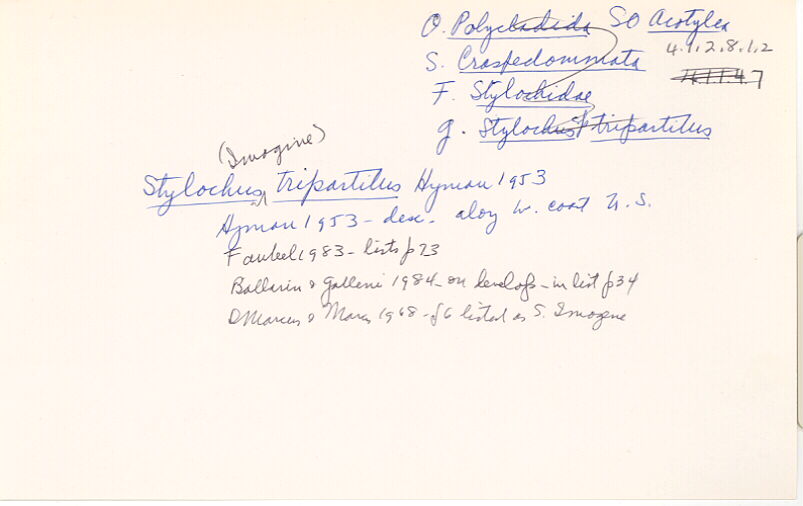 O. Polycladida SO Acotylea
4.1.2.8.1.2
S. Craspedommata
4.1.1.4.7
F. Stylochidae
g. Stylochus tripartitus
(Imogine)
Stylochus tripartitus Hyman 1953
Hyman 1953 - desc. along w. coast U.S.
Faubel 1983 - lists p 73
Ballarin & Galleni 1984 - on develop - in list p 34
D Marcus & Marcus 1968 - p6 listed as S. Imogene